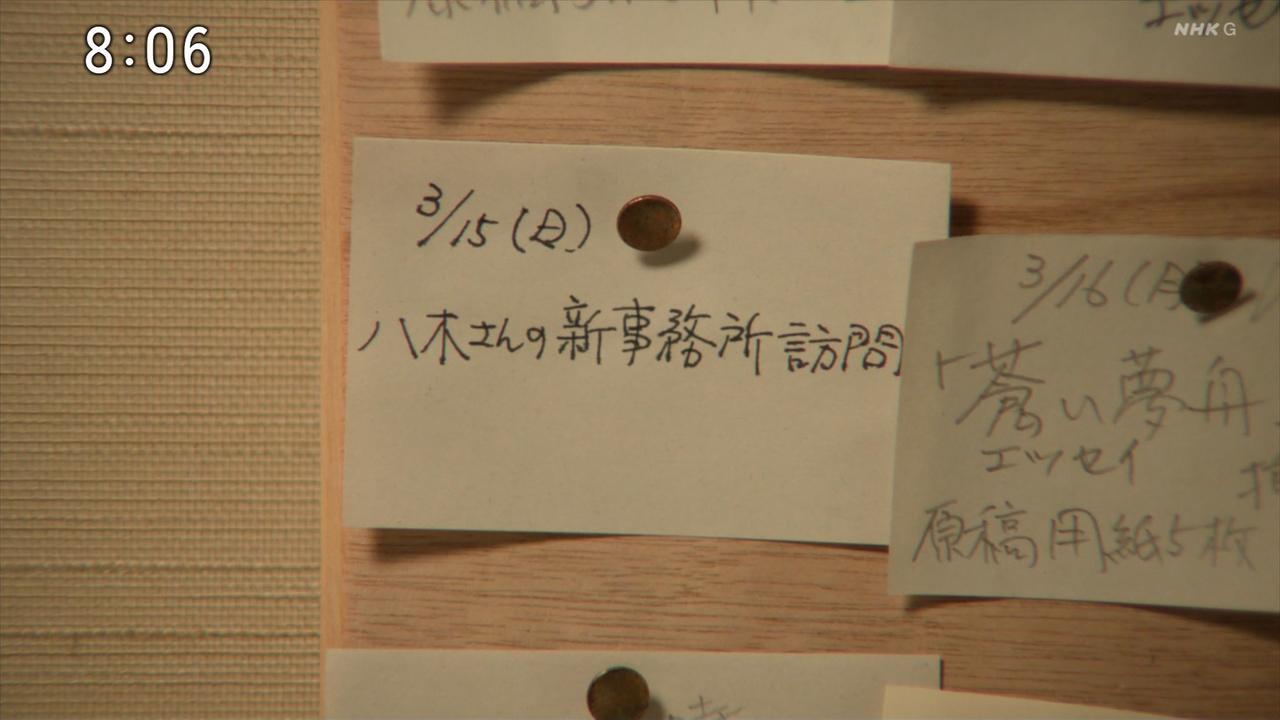 8:06
NHK G
エッセ
3/15(日)
八木さんの新事務所訪問
3/16(月)
「蒼い夢舟
エッセイ
原稿用紙5枚